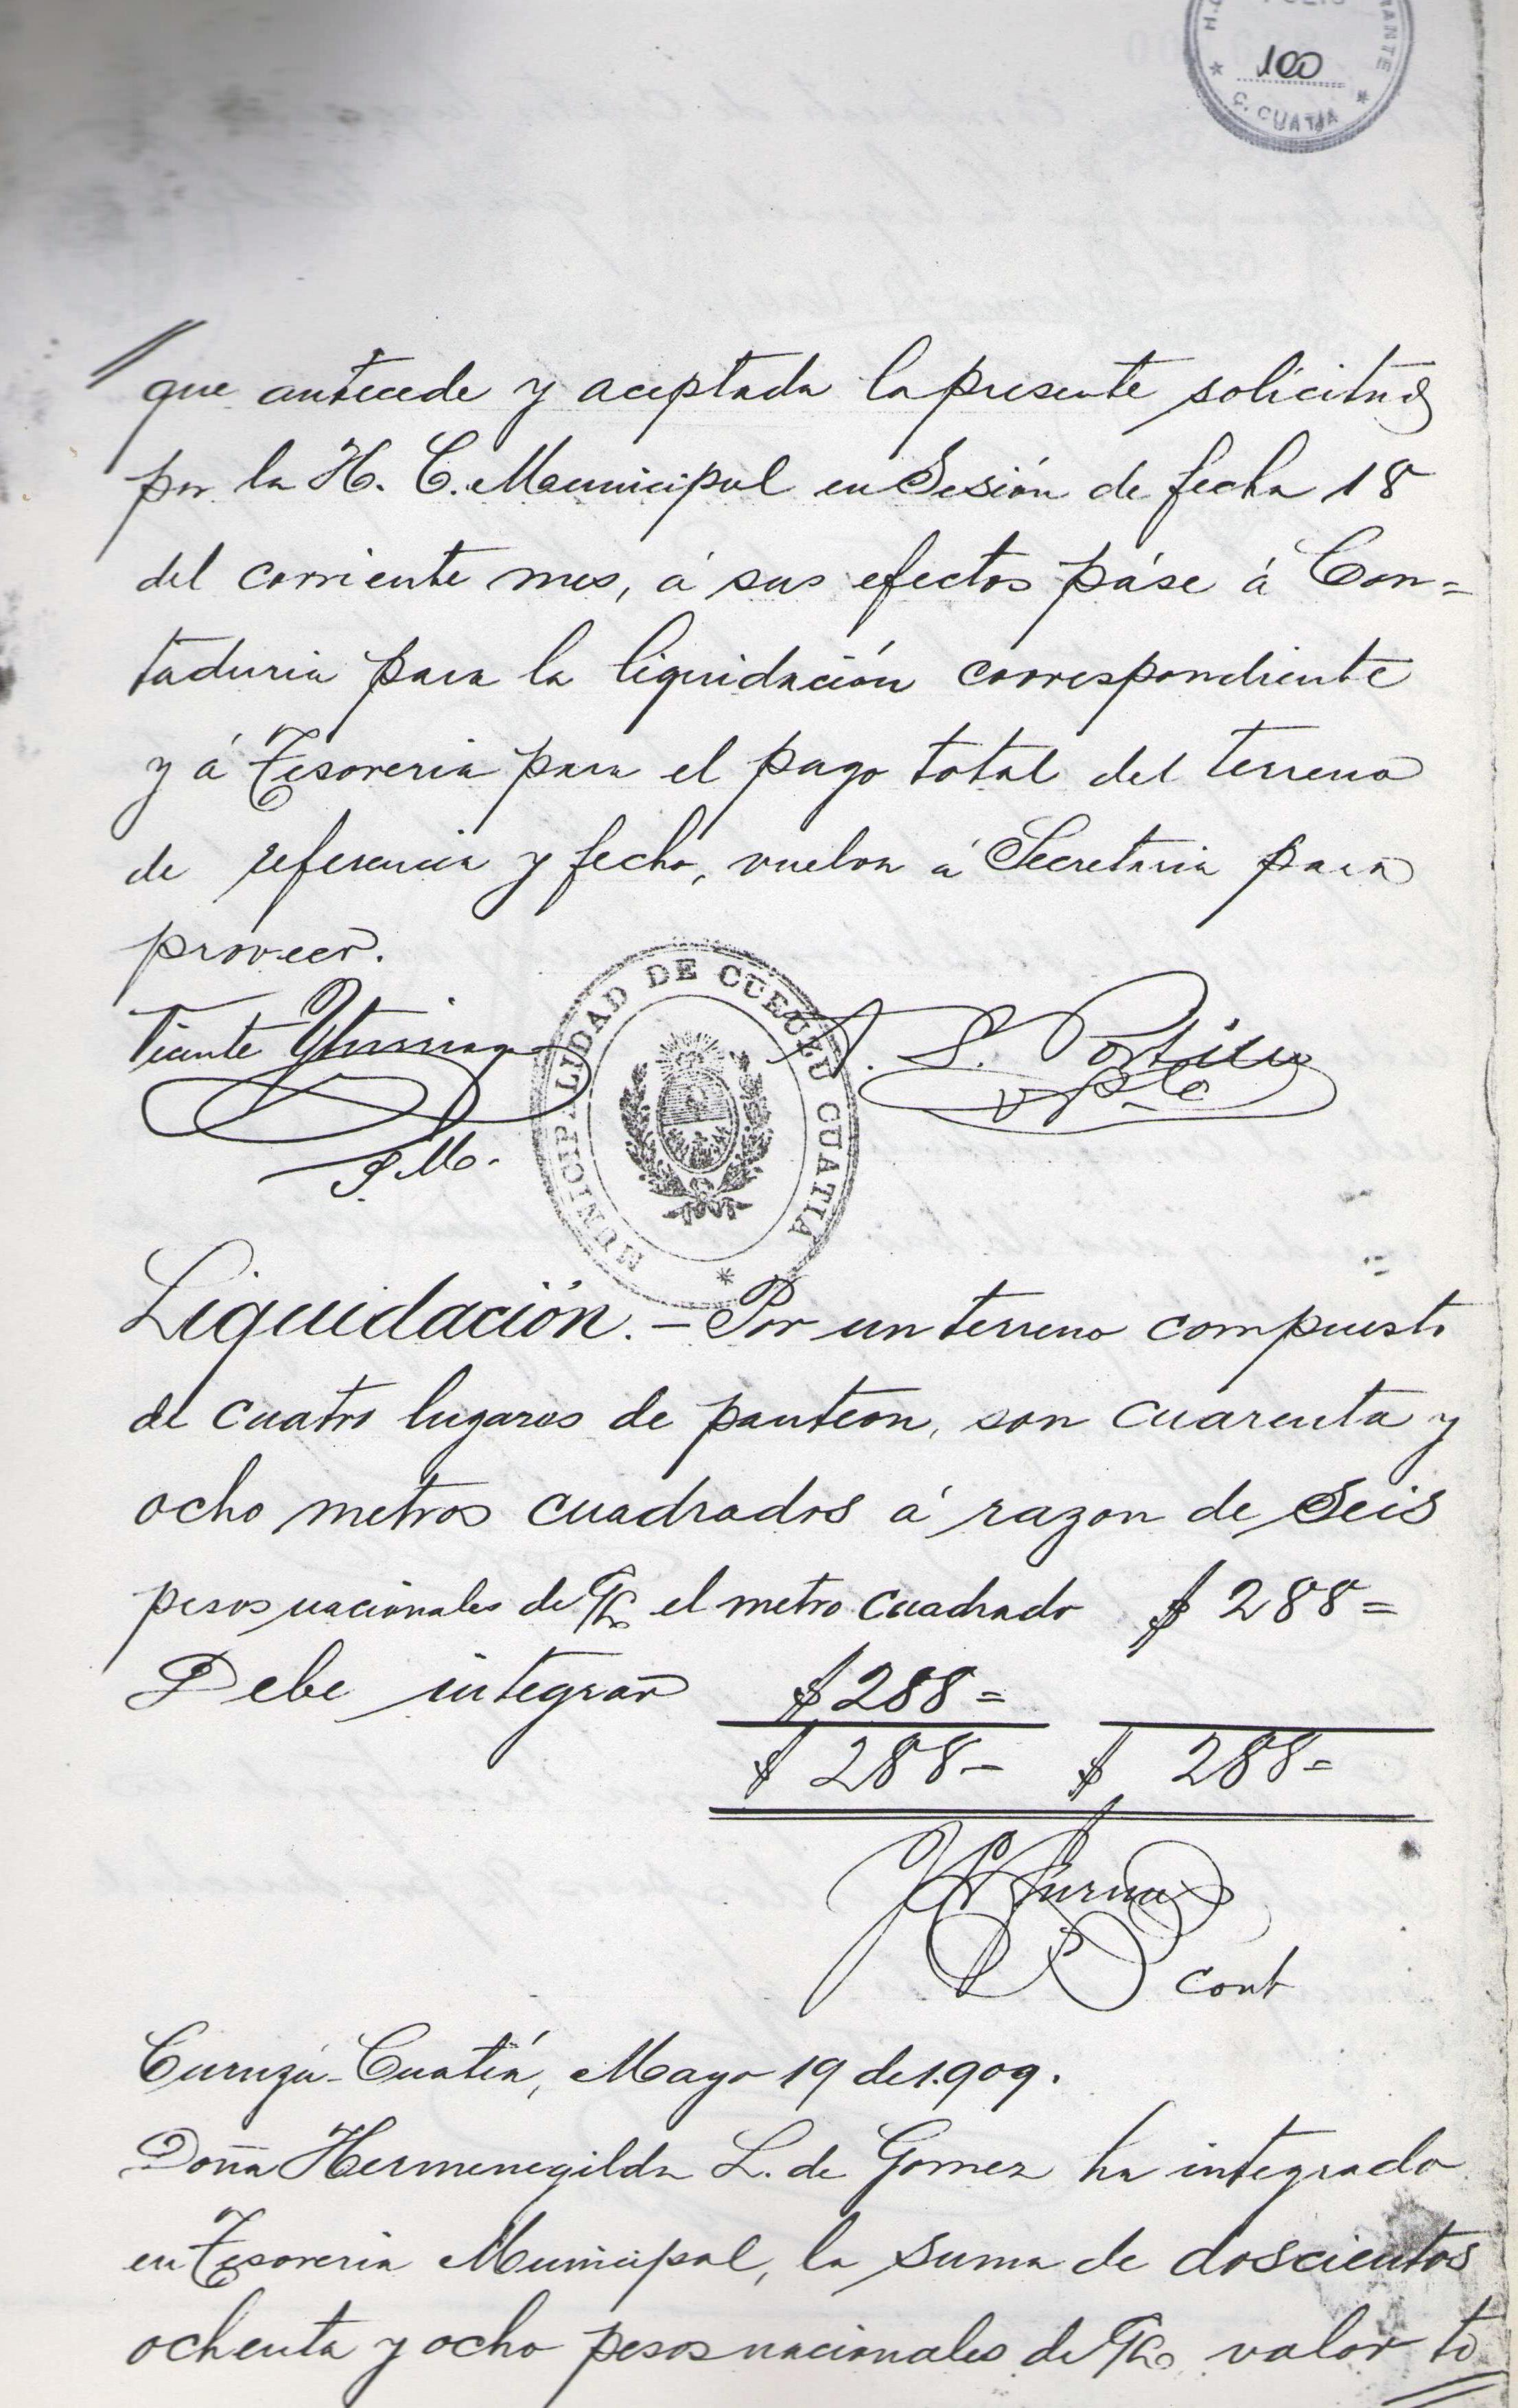 100
C. CUATIA
// que antecede y aceptada la presente solicitud
por la H. C. Municipal en Sesión de fecha 18
del corriente mes, á sus efectos páse á Con=
taduria para la liquidación correspondiente
y á Tesoreria para el pago total del terreno
de referencia y fecho, vuelva á Secretaria para
proveer.
MUNICIPALIDAD DE CURUZU CUATIA
Vicente
S. Portillo
Vpte
S. M.
Liquidación. - Por un terreno compuesto
de cuatro lugares de panteon, son cuarenta y
ocho metros cuadrados á razon de Seis
pesos nacionales de m/n el metro cuadrado $ 288=
Debe integrar $ 288=
$ 288- $ 288=
cont
Curuzú-Cuatiá, Mayo 19 de 1.909.
Doña Hermenegilda L. de Gomez ha integrado
en Tesoreria Municipal, la suma de doscientos
ochenta y ocho pesos nacionales de m/n valor to
//